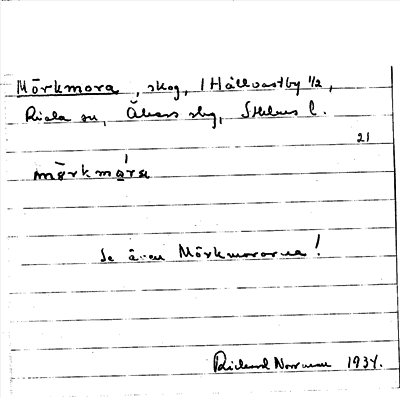 Mörkmora, skog, 1 Hållvastby ½,
Riala sn, Åkers skg, Sthlms l.
21
mörkmóra
Se även Mörkmororna!
Rickard Norrman 1934.